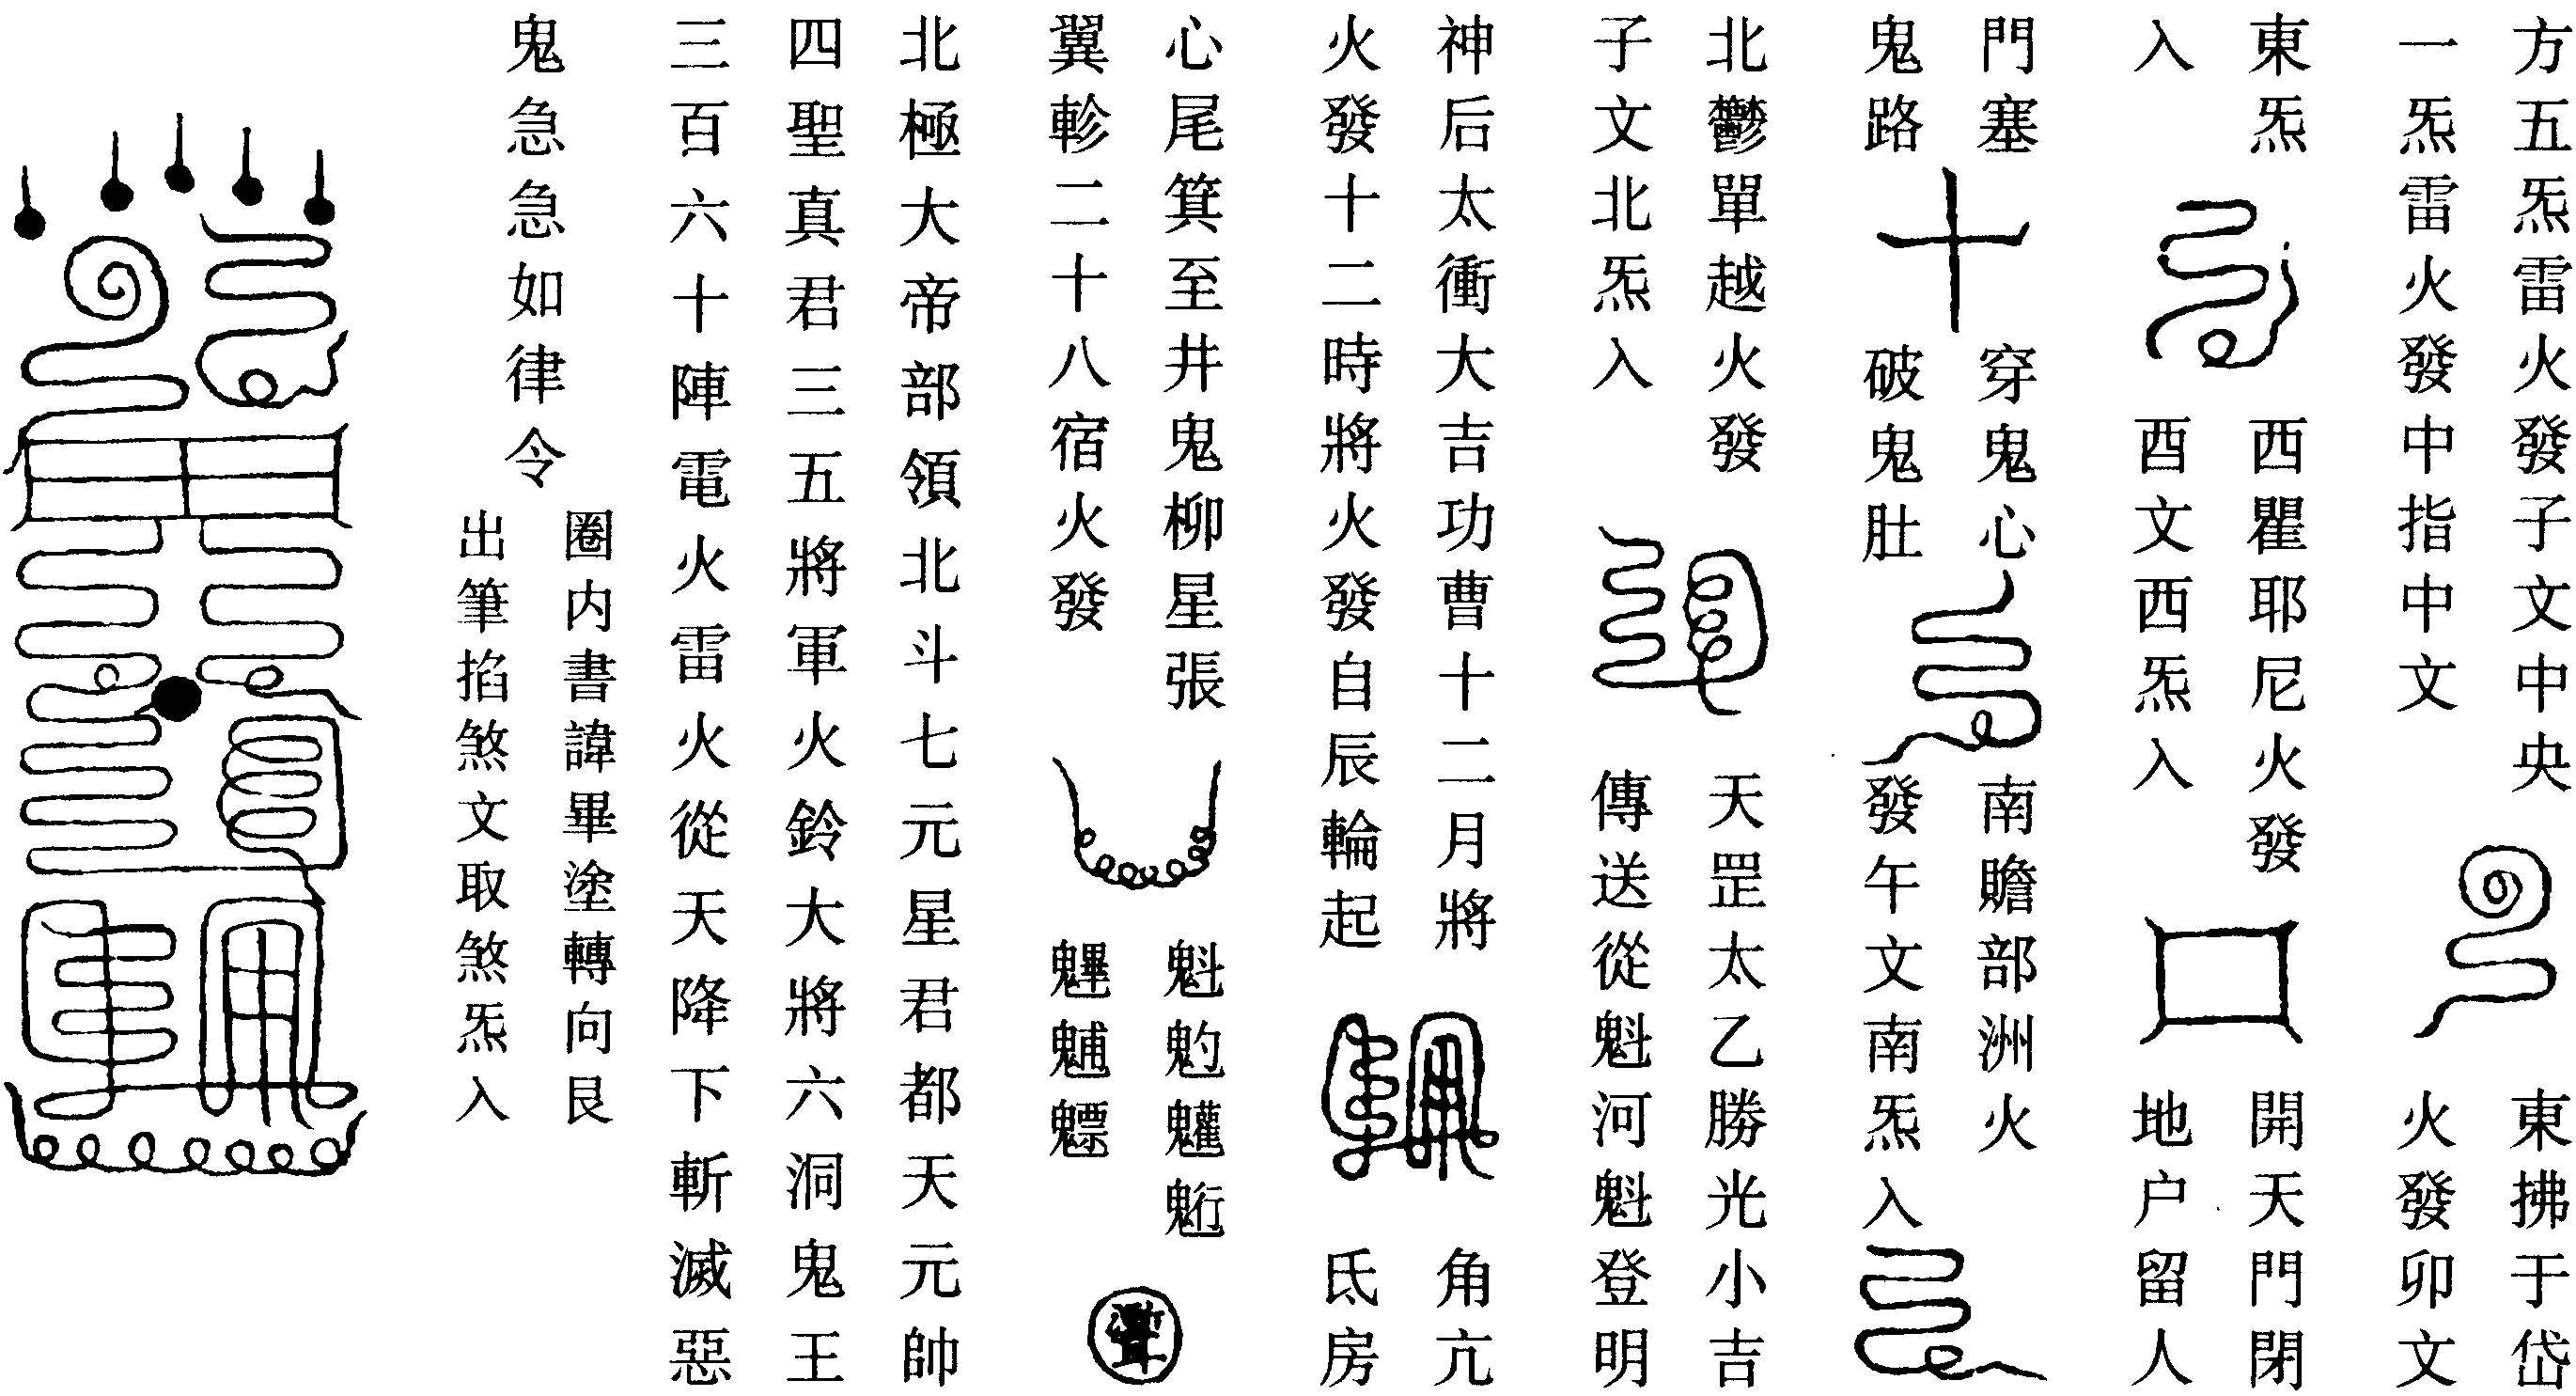 方五炁雷火發子文中央
一炁雷火發中指中文
東拂于岱
火發卯文
東炁
入
西瞿耶尼火發
酉文西炁入
開天門閉
地户留人
門塞
鬼路
穿鬼心
破鬼肚
南贍部洲火
發午文南炁入
北鬱單越火發
子文北炁入
天罡太乙勝光小吉
傳送從魁河魁登明
神后太衝大吉功曹十二月將
火發十二時將火發自辰輪起
角亢
氐房
心尾箕至井鬼柳星張
翼軫二十八宿火發
魁𩲃𩵄䰢
魓𩳐魒
北極大帝部領北斗七元星君都天元帥
四聖真君三五將軍火鈴大將六洞鬼王
三百六十陣電火雷火從天降下斬滅惡
鬼急急如律令
圈内書諱畢塗轉向艮
出筆掐煞文取煞炁入